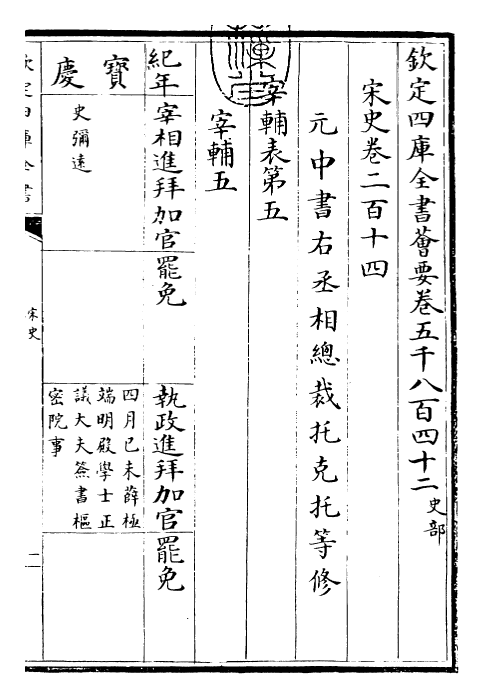 欽定四庫全書薈要卷五千八百四十二 史部
宋史卷二百十四
元中書右丞相總裁托克托等修
宰輔表第五
宰輔五
紀年 宰相進拜加官 罷免 執政進拜加官 罷免
寶慶
史彌遠
四月己未薛極
端明殿學士正
議大夫簽書樞
密院事
欽定四庫全書
宋史